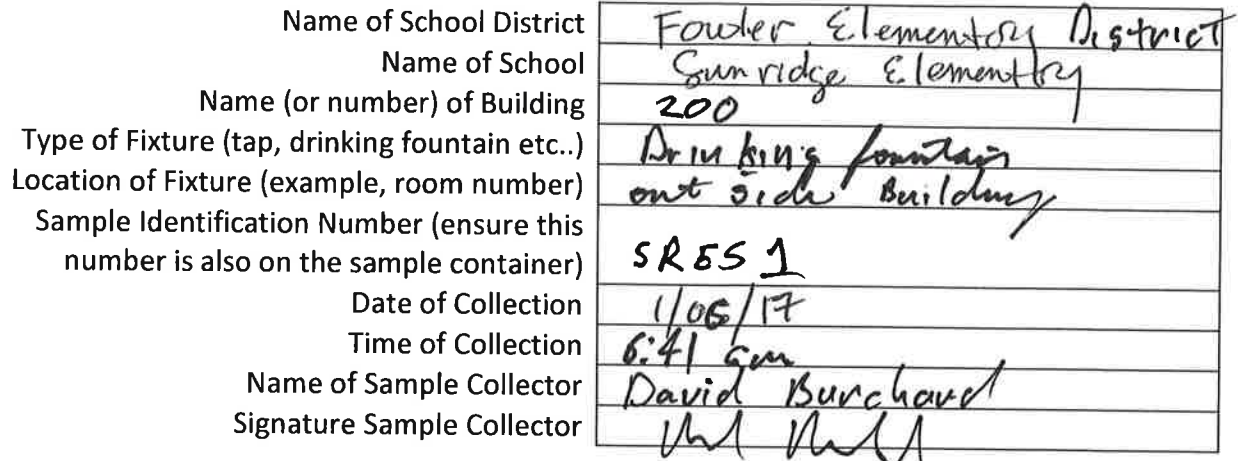 Name of School District Fowler Elementary District
Name of School Sunridge Elementtry
Name (or number) of Building 200
Type of Fixture (tap, drinking fountain etc..) Drinking fountain
Location of Fixture (example, room number) out side Building
Sample Identification Number (ensure this
number is also on the sample container) SRES 1
Date of Collection 1/06/17
Time of Collection 6:41 am
Name of Sample Collector David Burchard
Signature Sample Collector